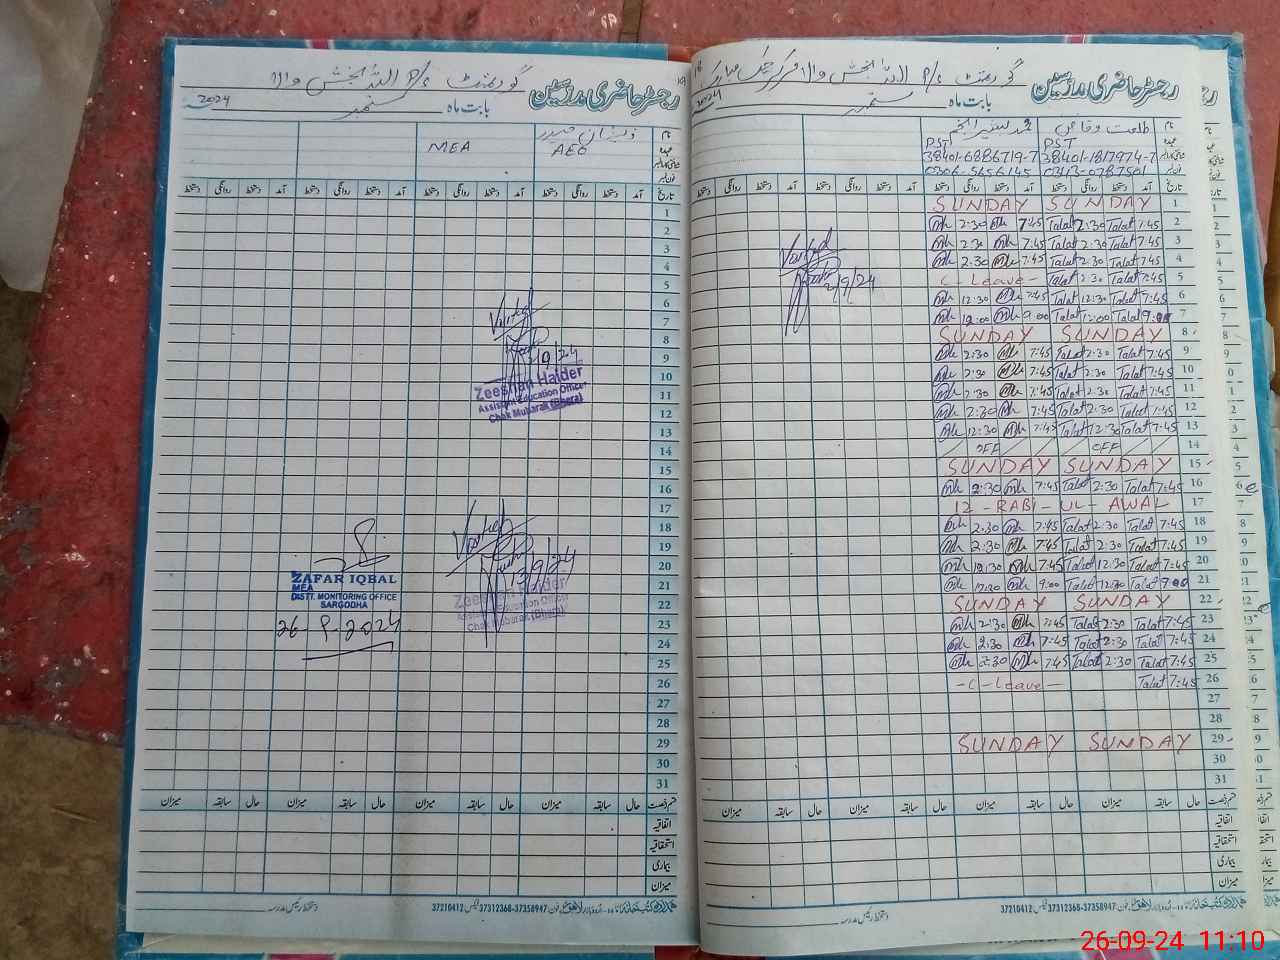 رجسٹر حاضری مدرسین
گورنمنٹ P/S اللہ بخش والا
بابت ماہ ستمبر 2024
نام
ذیشان حیدر
MEA AEO
تاریخ آمد دستخط روانگی دستخط آمد دستخط روانگی دستخط آمد دستخط روانگی دستخط آمد دستخط روانگی دستخط
1
2
3
4
5
6
7
8
9
10
11
12
13
14
15
16
17
18
19
20
21
22
23
24
25
26
27
28
29
30
31
Visited
Zeeshan Haider
Assistant Education Officer
Chak Mubarak (Bhera)
Visited
Zeeshan Haider
Assistant Education Officer
Chak Mubarak (Bhera)
ZAFAR IQBAL
MEA
DISTT. MONITORING OFFICE
SARGODHA
26-9-2024
قسم رخصت حال سابقہ میزان حال سابقہ میزان حال سابقہ میزان حال سابقہ میزان
اتفاقیہ
استحقاقیہ
بیماری
میزان
37210412 فیکس 37312368-37358947
دستخط رئیس مدرسہ
رجسٹر حاضری مدرسین
گورنمنٹ P/S اللہ بخش والا مرکز چک مبارک
بابت ماہ ستمبر 2024
نام طلعت وقاص
PST PST
38401-6886719-7 38401-1817974-7
0306-5656145 0343-0787501
تاریخ آمد دستخط روانگی دستخط آمد دستخط روانگی دستخط آمد دستخط روانگی دستخط آمد دستخط روانگی دستخط
SUNDAY SUNDAY 1
2:30 7:45 Talat 2:30 Talat 7:45 2
2:30 7:45 Talat 2:30 Talat 7:45 3
2:30 7:45 Talat 2:30 Talat 7:45 4
C - Leave - Talat 2:30 Talat 7:45 5
12:30 7:45 Talat 12:30 Talat 7:45 6
12:00 9:00 Talat 12:00 Talat 9:00 7
SUNDAY SUNDAY 8
2:30 7:45 Talat 2:30 Talat 7:45 9
2:30 7:45 Talat 2:30 Talat 7:45 10
2:30 7:45 Talat 2:30 Talat 7:45 11
2:30 7:45 Talat 2:30 Talat 7:45 12
12:30 7:45 Talat 12:30 Talat 7:45 13
OFF OFF 14
SUNDAY SUNDAY 15
2:30 7:45 Talat 2:30 Talat 7:45 16
12 - RABI - UL - AWAL 17
2:30 7:45 Talat 2:30 Talat 7:45 18
2:30 7:45 Talat 2:30 Talat 7:45 19
12:30 7:45 Talat 12:30 Talat 7:45 20
12:30 9:00 Talat 12:30 Talat 21
SUNDAY SUNDAY 22
2:30 7:45 Talat 2:30 Talat 7:45 23
2:30 7:45 Talat 2:30 Talat 7:45 24
2:30 7:45 Talat 2:30 Talat 7:45 25
- C - Leave - Talat 7:45 26
27
28
SUNDAY SUNDAY 29
30
31
Visited
2/9/24
قسم رخصت حال سابقہ میزان حال سابقہ میزان حال سابقہ میزان حال سابقہ میزان
اتفاقیہ
استحقاقیہ
بیماری
میزان
37210412 فیکس 37312368-37358947
دستخط رئیس مدرسہ
26-09-24 11:10